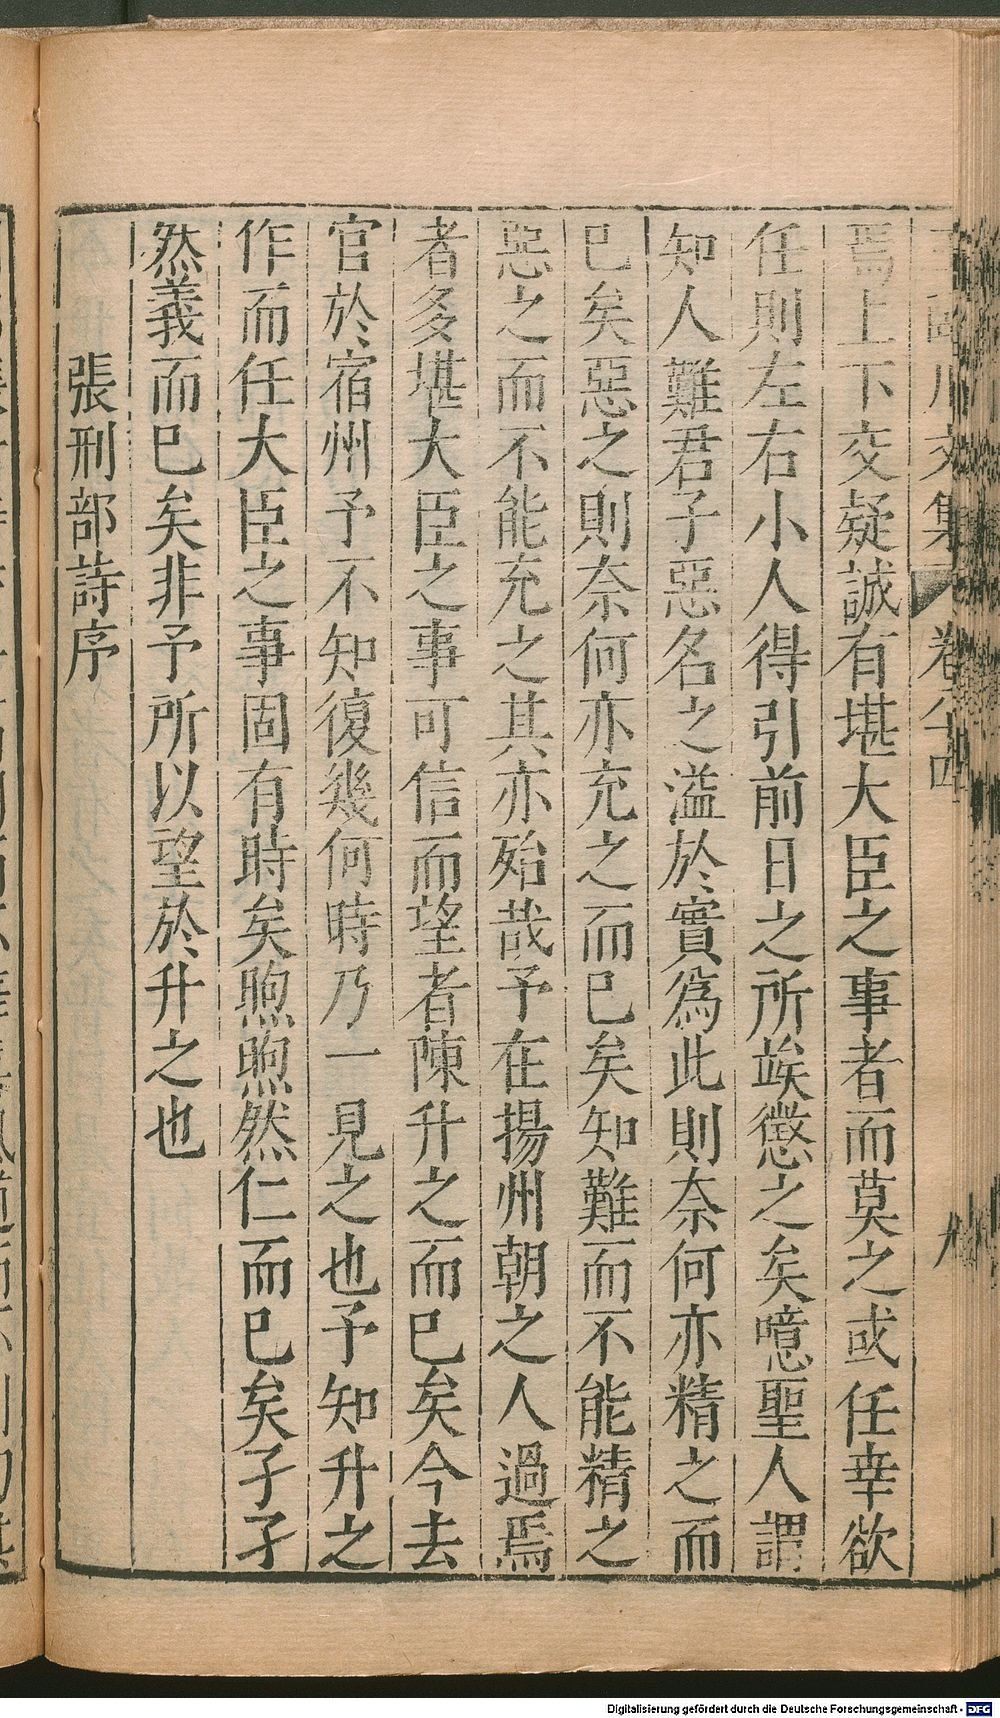 川文集 卷八十四
焉上下交疑誠有堪大臣之事者而莫之或任幸欲
任則左右小人得引前日之所竢懲之矣噫聖人謂
知人難君子惡名之溢於實爲此則奈何亦精之而
已矣惡之則奈何亦充之而已矣知難而不能精之
惡之而不能充之其亦殆哉予在揚州朝之人過焉
者多堪大臣之事可信而望者陳升之而已矣今去
官於宿州予不知復幾何時乃一見之也予知升之
作而任大臣之事固有時矣煦煦然仁而已矣孑孑
然義而已矣非予所以望於升之也
張刑部詩序
Digitalisierung gefördert durch die Deutsche Forschungsgemeinschaft - DFG